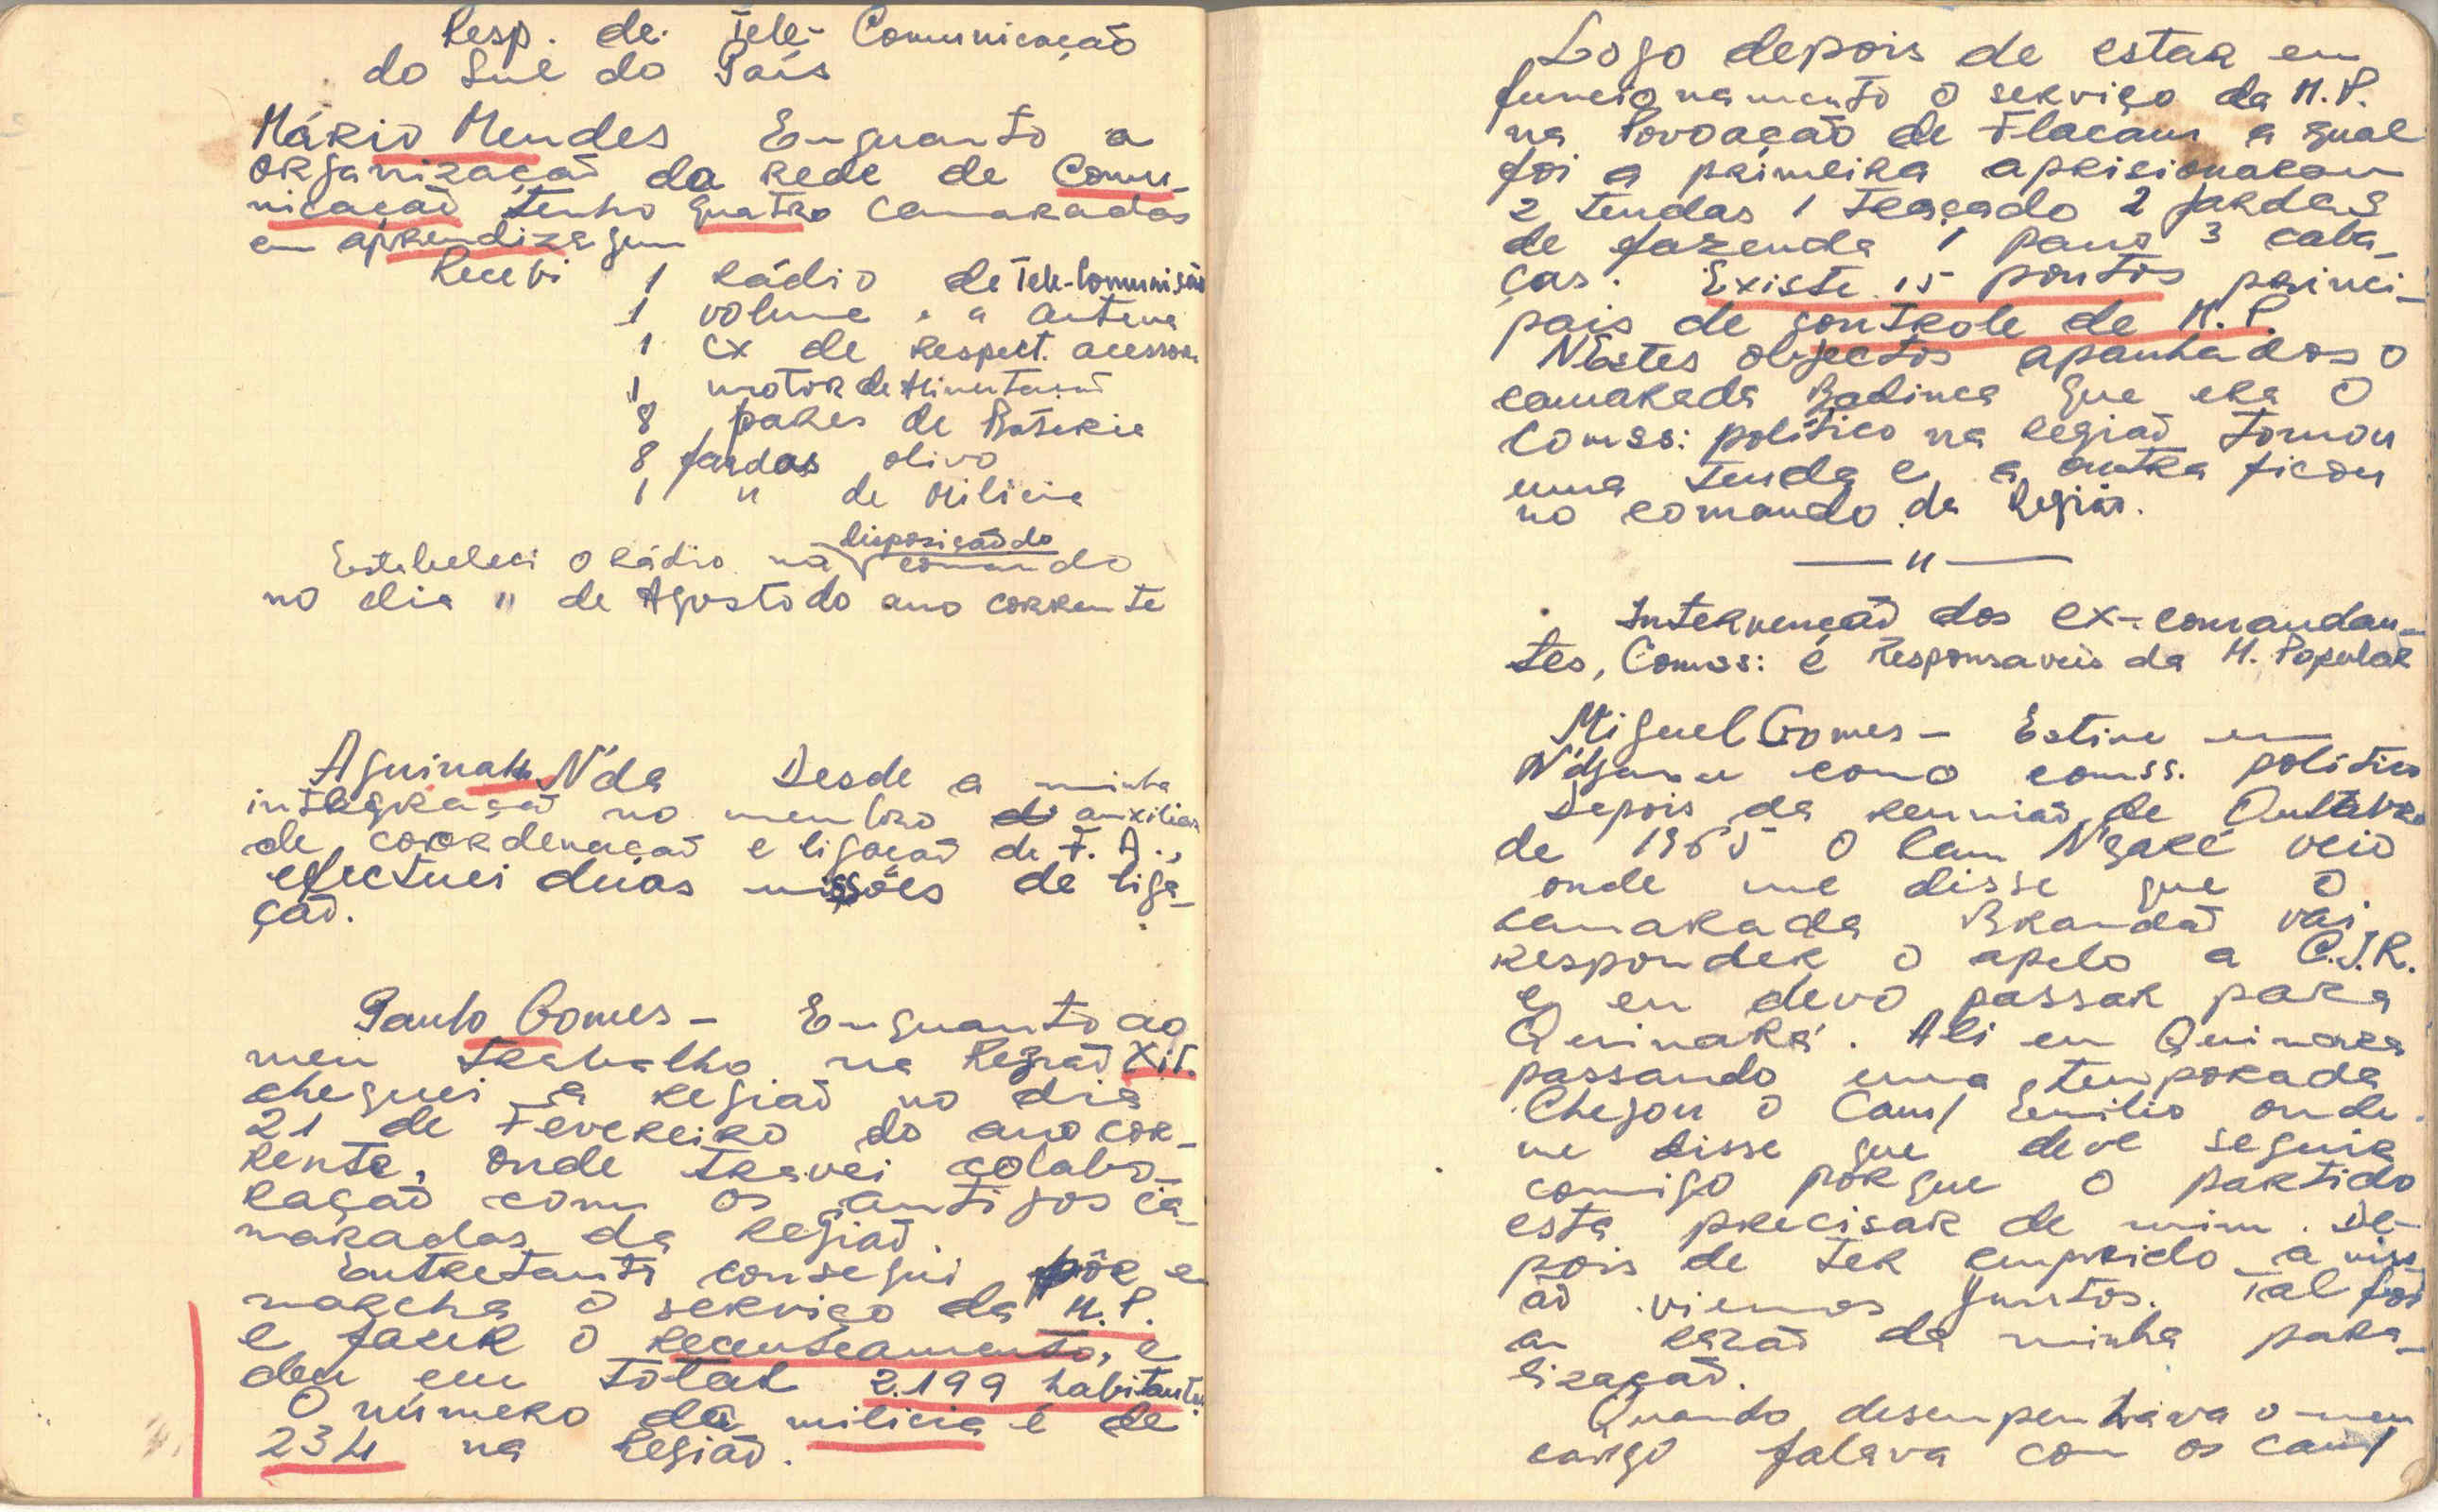 Resp. de Tele-Comunicação
do Sul do País
Mário Mendes Enquanto a
organização da rede de Comu-
nicação tenho quatro camaradas
em aprendizagem
Recebi 1 Rádio de Tele-Comunição
1 volume " " antena
1 cx de respect. acessor.
1 motor de Alimentação
8 pares de Bateria
8 fardas olivo
1 " de Milicia
disposição do
Estabeleci o Rádio na comando
no dia 11 de Agosto do ano corrente
Aguinalo N'da Desde a minha
integração no membro de auxiliar
de coordenação e ligação de F. A.,
efectuei duas missões de liga-
ção.
Paulo Gomes - Enquanto ao
meu trabalho na Região Xit.
cheguei a região no dia
21 de Fevereiro do ano cor-
rente, onde travei colabo-
ração com os antigos ca-
maradas da região.
Entretanto consegui pôr em
marcha o serviço da M.P.
e fazer o recenseamento, e
deu em total 2.199 habitantes.
O número da milicia é de
234 na Região.
Logo depois de estar em
funcionamento o serviço da M.P.
na Povoação de Flacam a qual
foi a primeira aprisionaram
2 tendas 1 traçado 2 fardas
de fazenda 1 pano 3 caba-
ças. Existe 15 pontos princi-
pais de controle de M.P.
Nestes objectos apanhados o
camarada Badinca que era o
Comss: político na região tomou
uma tenda e a outra ficou
no comando da Região.
— " —
Intervenção dos ex-comandan-
tes, Comss: e Responsaveis da M. Popular
Miguel Gomes - Estive em
como comss. politico
Depois da reunião de Outubro
de 1965 o Cam N'garé veio
onde me disse que o
camarada Brandão vai
responder o apelo a C.I.R.
e eu devo passar para
Quinara. Ali em Quinara
passando uma temporada
Chegou o Cam/ Emilio onde
me disse que deve seguir
comigo porque o partido
esta precisar de mim. De-
pois de ter cumprido a miss-
ão viemos juntos. Tal foi
a razão da minha para-
lização.
Quando desempenhava o meu
cargo falava com os cam/